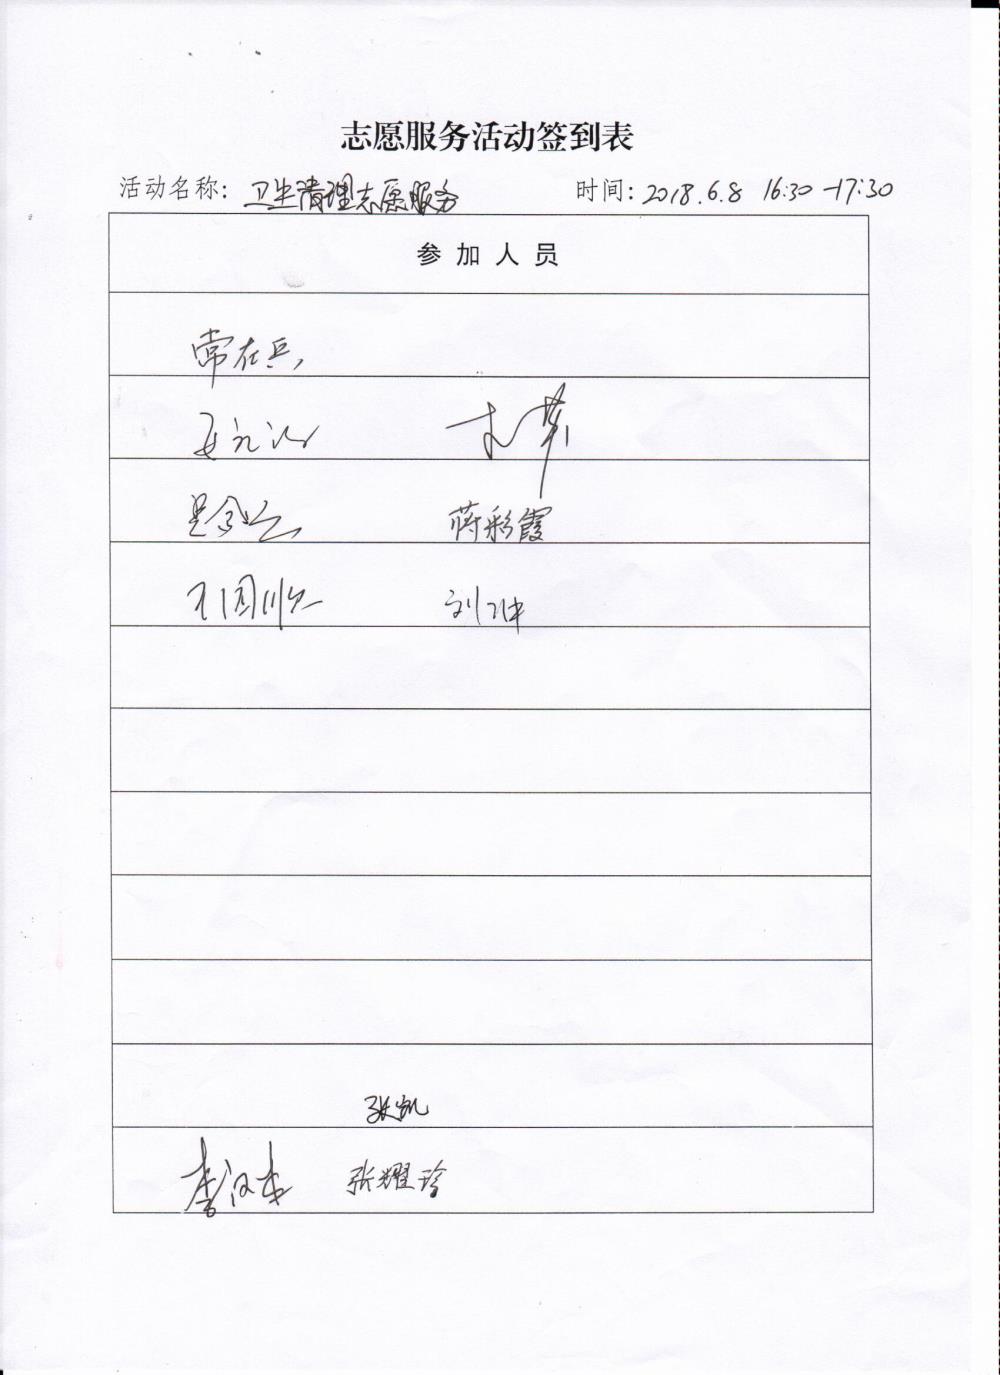 志愿服务活动签到表
活动名称：卫生清理志愿服务 时间：2018.6.8 16:30-17:30
参加人员
常在兵
蒋彩霞
刘冲
张凯
李汉杰 张耀玲